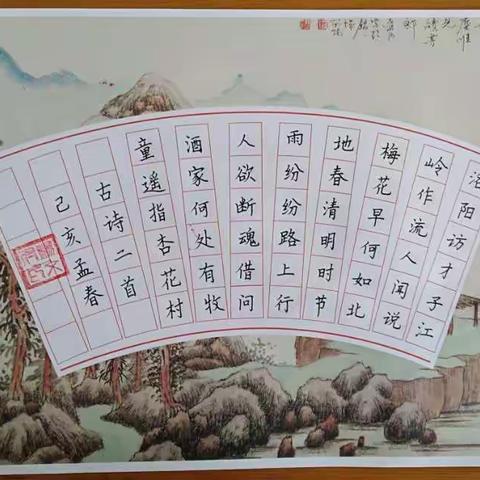 洛阳访才子江
岭作流人闻说
梅花早何如北
地春清明时节
雨纷纷路上行
人欲断魂借问
酒家何处有牧
童遥指杏花村
古诗二首
己亥孟春